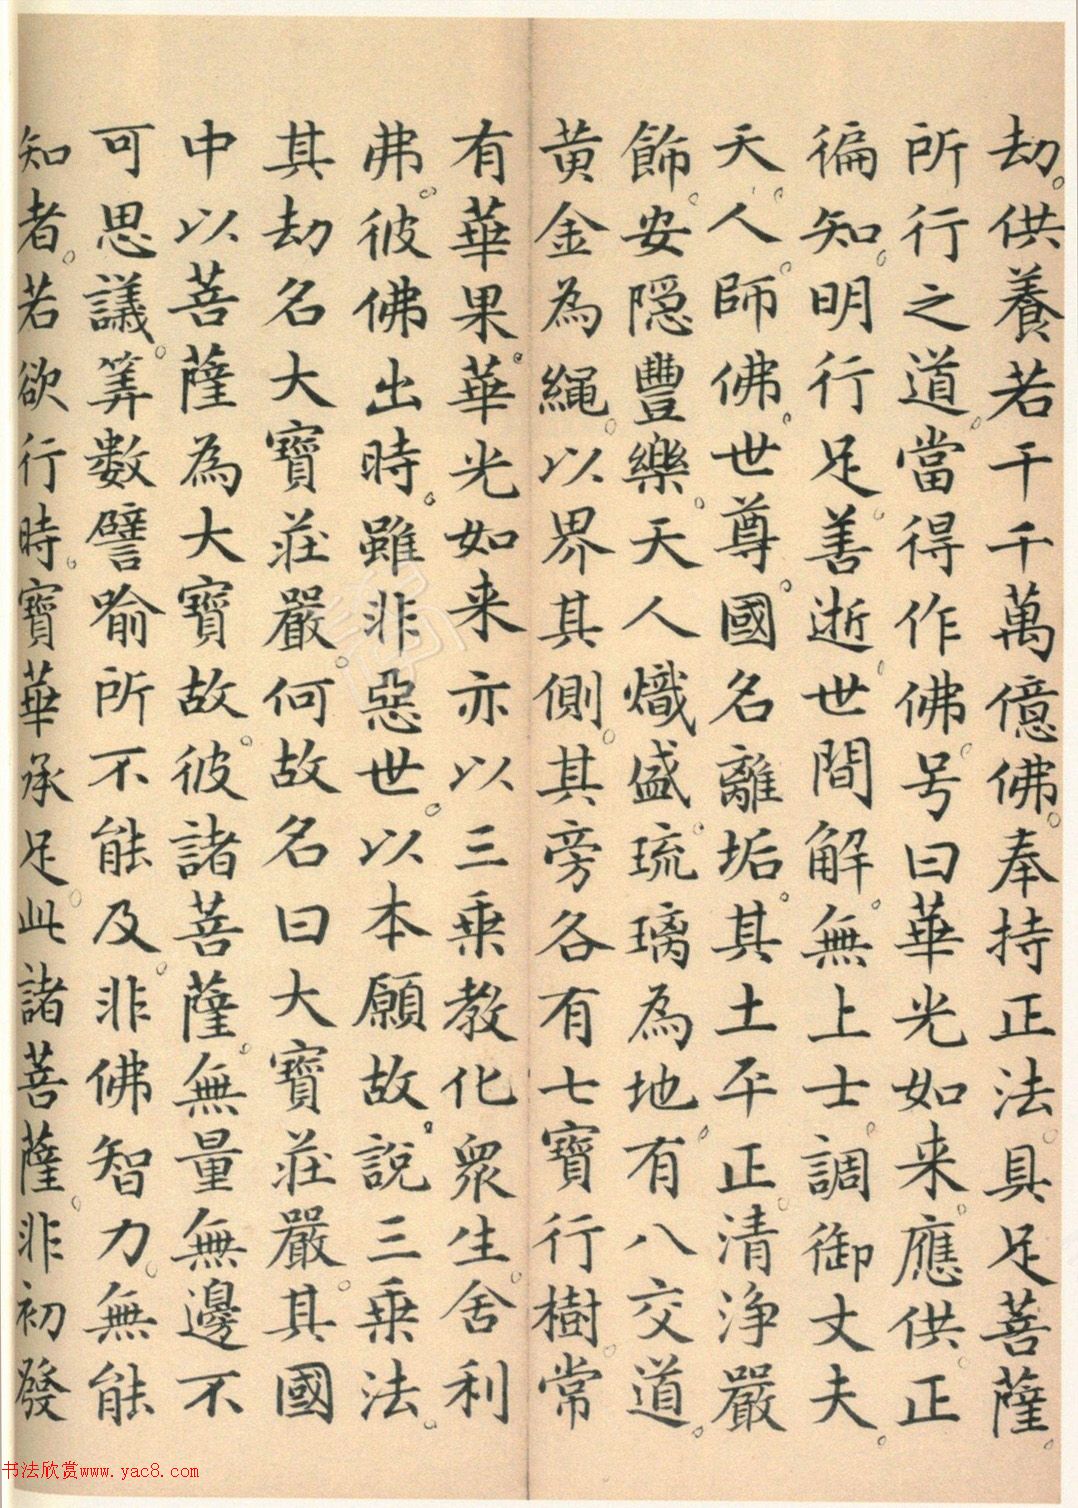 劫。供養若干千萬億佛。奉持正法。具足菩薩。
所行之道。當得作佛。号曰華光如来。應供。正
徧知。明行足。善逝。世間解。無上士。調御丈夫。
天。人。師。佛。世尊。國名離垢。其土平正。清淨嚴
飾。安隱豐樂。天人熾盛。琉璃為地。有八交道。
黄金為繩。以界其側。其旁各有七寶行樹。常
有華果。華光如来亦以三乗教化衆生。舍利
弗。彼佛出時。雖非惡世。以本願故。說三乗法。
其劫名大寶莊嚴。何故名曰大寶莊嚴。其國
中以菩薩為大寶故。彼諸菩薩。無量無邊不
可思議。筭數譬喻所不能及。非佛智力。無能
知者。若欲行時。寶華承足。此諸菩薩。非初發
书法欣赏www.yac8.com